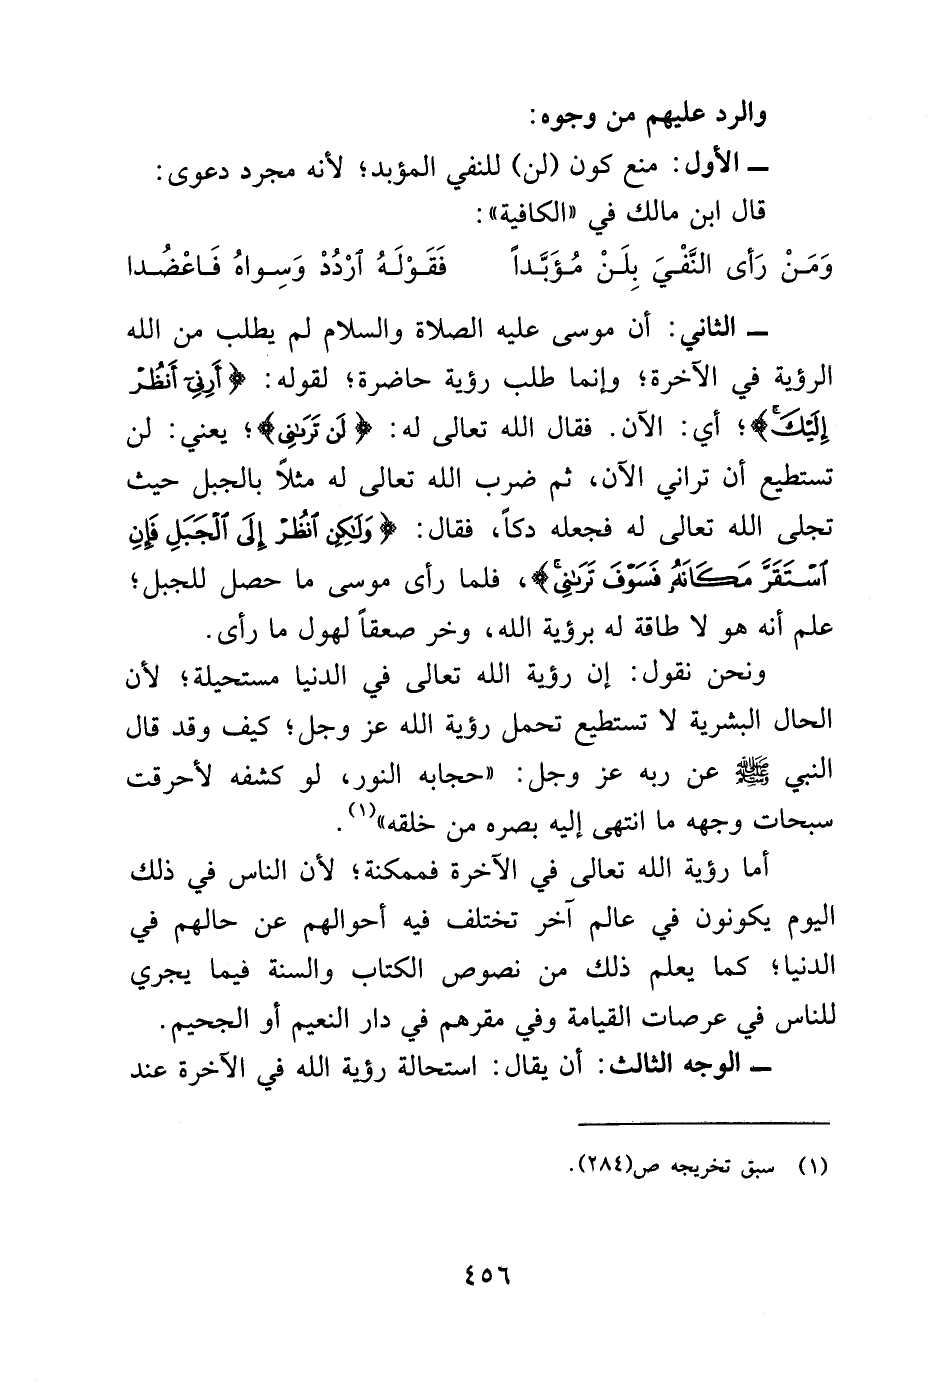 والرد عليهم من وجوه:
ـ الأول: منع كون (لن) للنفي المؤبد؛ لأنه مجرد دعوى:
قال ابن مالك في «الكافية»:
وَمَنْ رَأى النَّفْيَ بِلَنْ مُؤَبَّداً فَقَوْلَهُ ٱرْدُدْ وَسِواهُ فَاعْضُدا
ـ الثاني: أن موسى عليه الصلاة والسلام لم يطلب من الله
الرؤية في الآخرة؛ وإنما طلب رؤية حاضرة؛ لقوله: ﴿أَرِنِيٓ أَنظُرۡ
إِلَيۡكَۚ﴾؛ أي: الآن. فقال الله تعالى له: ﴿لَن تَرَىٰنِي﴾؛ يعني: لن
تستطيع أن تراني الآن، ثم ضرب الله تعالى له مثلاً بالجبل حيث
تجلى الله تعالى له فجعله دكاً، فقال: ﴿وَلَٰكِنِ ٱنظُرۡ إِلَى ٱلۡجَبَلِ فَإِنِ
ٱسۡتَقَرَّ مَكَانَهُۥ فَسَوۡفَ تَرَىٰنِيۚ﴾، فلما رأى موسى ما حصل للجبل؛
علم أنه هو لا طاقة له برؤية الله، وخر صعقاً لهول ما رأى.
ونحن نقول: إن رؤية الله تعالى في الدنيا مستحيلة؛ لأن
الحال البشرية لا تستطيع تحمل رؤية الله عز وجل؛ كيف وقد قال
النبي ﷺ عن ربه عز وجل: «حجابه النور، لو كشفه لأحرقت
سبحات وجهه ما انتهى إليه بصره من خلقه»(١).
أما رؤية الله تعالى في الآخرة فممكنة؛ لأن الناس في ذلك
اليوم يكونون في عالم آخر تختلف فيه أحوالهم عن حالهم في
الدنيا؛ كما يعلم ذلك من نصوص الكتاب والسنة فيما يجري
للناس في عرصات القيامة وفي مقرهم في دار النعيم أو الجحيم.
ـ الوجه الثالث: أن يقال: استحالة رؤية الله في الآخرة عند
(١) سبق تخريجه ص(٢٨٤).
٤٥٦